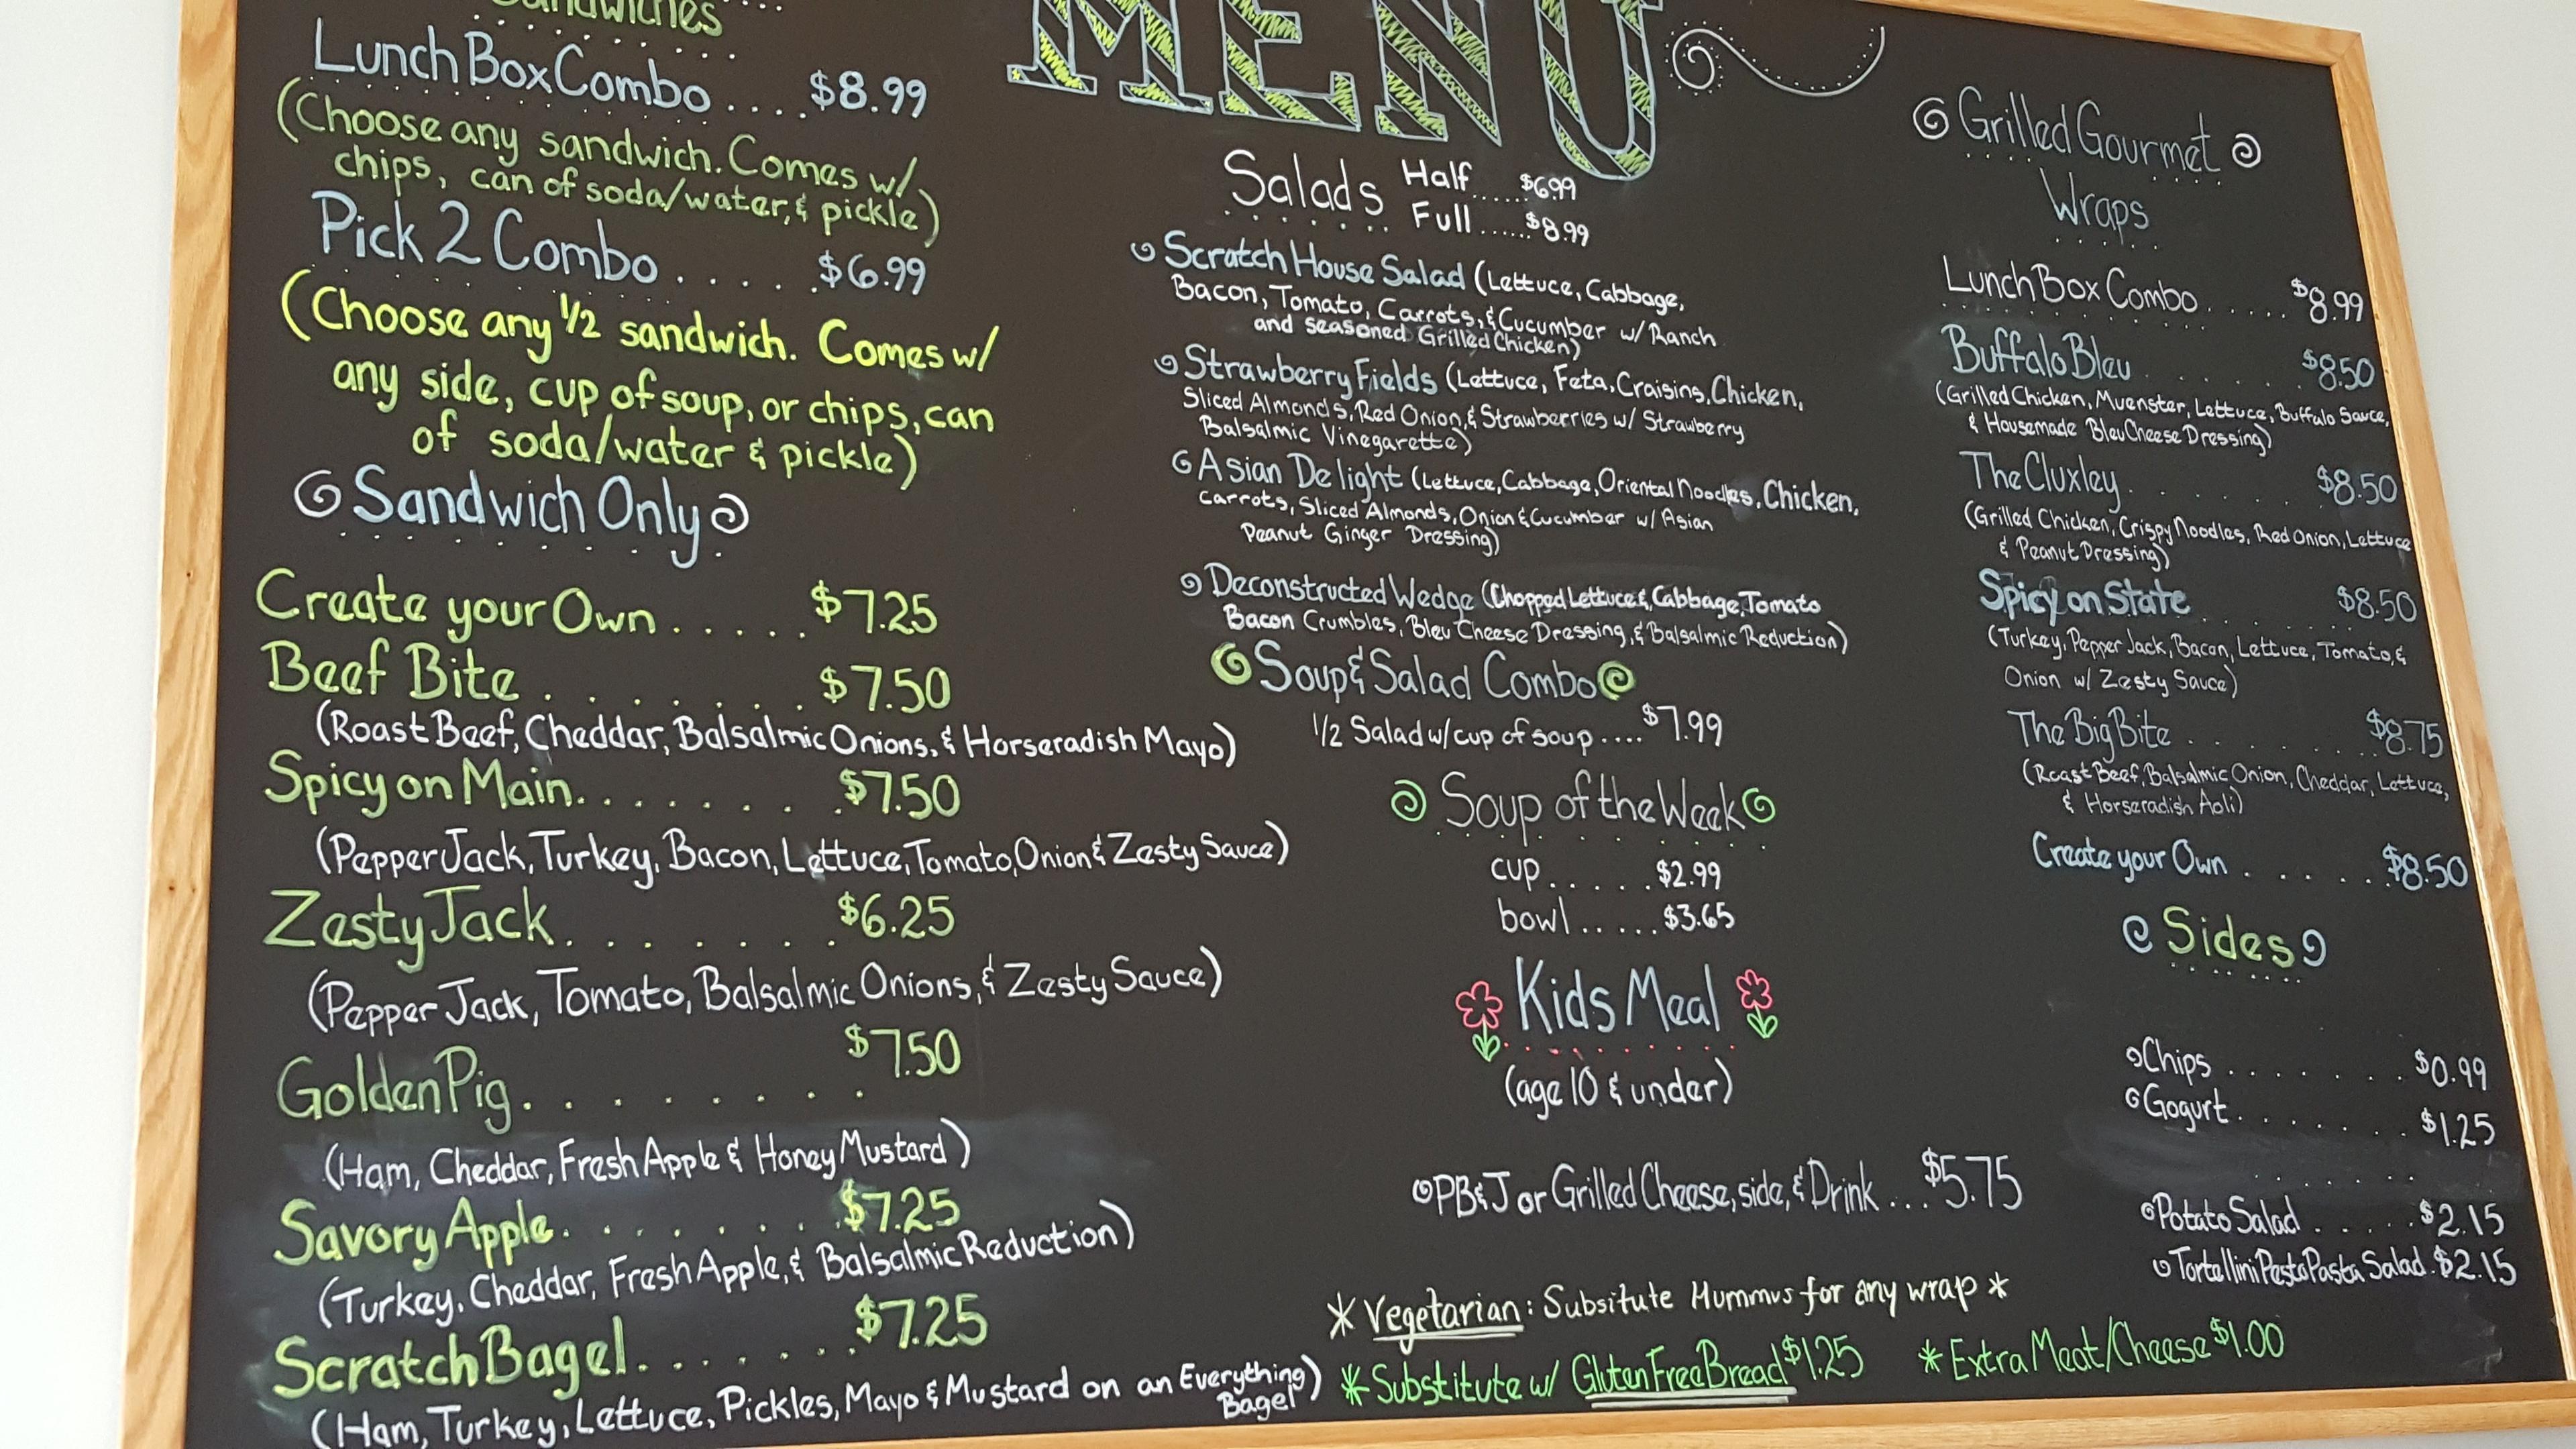 Sandwiches
Lunch Box Combo .... $8.99
(Choose any sandwich. Comes w/
chips, can of soda/water, & pickle)
Pick 2 Combo ..... $6.99
(Choose any 1/2 sandwich. Comes w/
any side, cup of soup, or chips, can
of soda/water & pickle)
Sandwich Only
Create your Own ..... $7.25
Beef Bite ....... $7.50
(Roast Beef, Cheddar, Balsalmic Onions, & Horseradish Mayo)
Spicy on Main....... $7.50
(Pepper Jack, Turkey, Bacon, Lettuce, Tomato, Onion & Zesty Sauce)
Zesty Jack....... $6.25
(Pepper Jack, Tomato, Balsalmic Onions, & Zesty Sauce)
Golden Pig......... $7.50
(Ham, Cheddar, Fresh Apple & Honey Mustard)
Savory Apple........ $7.25
(Turkey, Cheddar, Fresh Apple, & Balsalmic Reduction)
Scratch Bagel....... $7.25
(Ham, Turkey, Lettuce, Pickles, Mayo & Mustard on an Everything
Bagel)
MENU
Salads Half ..... $6.99
Full ...... $8.99
Scratch House Salad (Lettuce, Cabbage,
Bacon, Tomato, Carrots, & Cucumber w/ Ranch
and seasoned Grilled Chicken)
Strawberry Fields (Lettuce, Feta, Craisins, Chicken,
Sliced Almonds, Red Onion, & Strawberries w/ Strawberry
Balsalmic Vinegarette)
Asian Delight (Lettuce, Cabbage, Oriental Noodles, Chicken,
Carrots, Sliced Almonds, Onion & Cucumber w/ Asian
Peanut Ginger Dressing)
Deconstructed Wedge (Chopped Lettuce &, Cabbage, Tomato
Bacon Crumbles, Bleu Cheese Dressing, & Balsalmic Reduction)
Soup & Salad Combo
1/2 Salad w/cup of soup .... $7.99
Soup of the Week
cup ...... $2.99
bowl ..... $3.65
Kids Meal
(age 10 & under)
PB&J or Grilled Cheese, side, & Drink ... $5.75
Grilled Gourmet
Wraps
Lunch Box Combo ...... $8.99
Buffalo Bleu ....... $8.50
(Grilled Chicken, Muenster, Lettuce, Buffalo Sauce,
& Housemade Bleu Cheese Dressing)
The Cluxley ....... $8.50
(Grilled Chicken, Crispy Noodles, Red Onion, Lettuce
& Peanut Dressing)
Spicy on State ....... $8.50
(Turkey, Pepper Jack, Bacon, Lettuce, Tomato, &
Onion w/ Zesty Sauce)
The Big Bite ........ $8.75
(Roast Beef, Balsalmic Onion, Cheddar, Lettuce,
& Horseradish Aoli)
Create your Own ....... $8.50
Sides
Chips ........ $0.99
Gogurt ....... $1.25
Potato Salad ..... $2.15
Tortellini Pesto Pasta Salad . $2.15
* Vegetarian: Subsitute Hummus for any wrap *
* Substitute w/ Gluten Free Bread $1.25 * Extra Meat/Cheese $1.00